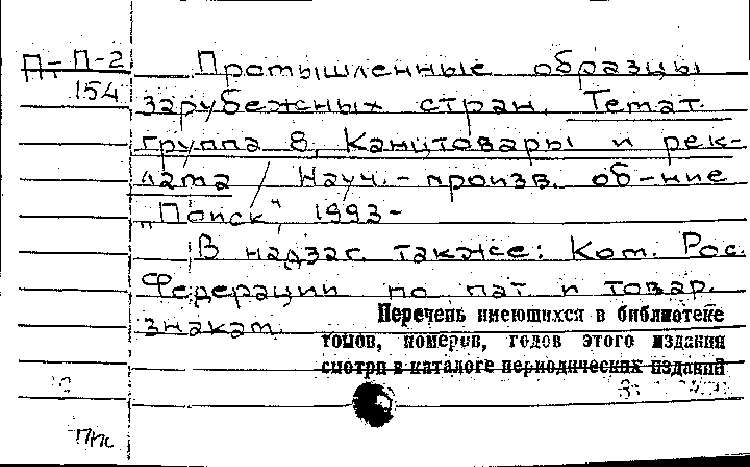 П-П-2
154
Промышленные образцы
зарубежных стран. Темат.
группа 8. Канцтовары и рек-
лама / Науч.-произв. об-ние
„Поиск", 1993-
В надзаг. также: Ком. Рос.
Федерации по пат. и товар.
знакам.
Перечень имеющихся в библиотеке
томов, номеров, годов этого издания
смотри в каталоге периодических изданий